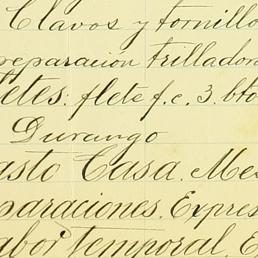 Clavos y tornillo
reparacion trillador
letes. flete f.c. 3. bto
Durango
asto Casa. Mes
paraciones. Expres
abor temporal. E